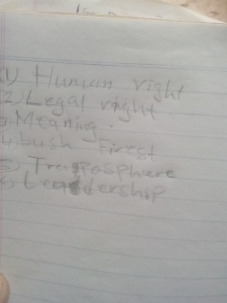 1) Human right
2) Legal right.
3) Meaning.
4. bush Firest
5) Traposphere
6) Leadership